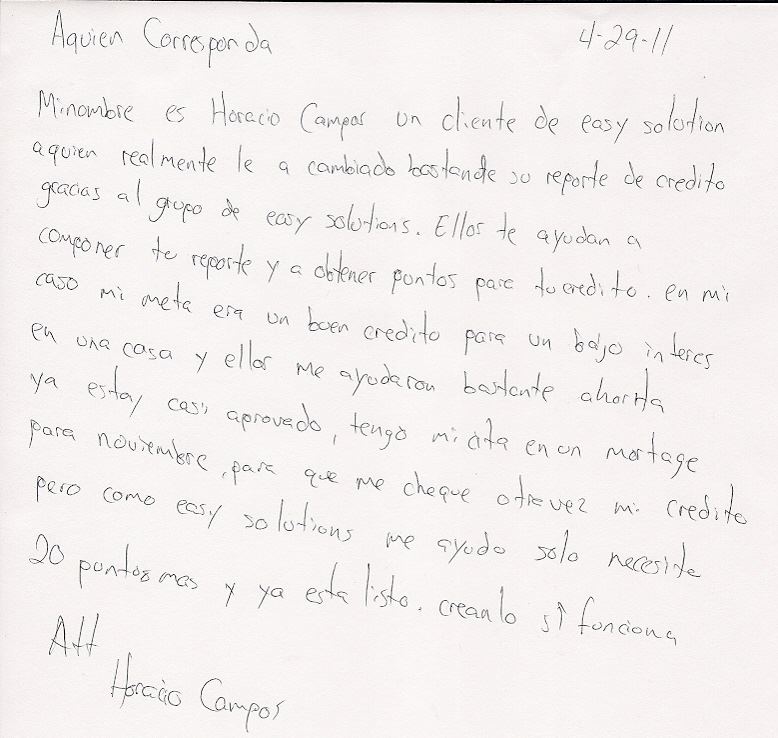 Aquien Corresponda 4-29-11
Minombre es Horacio Campos un cliente de easy solution
aquien realmente le a cambiado bastande su reporte de credito
gracias al grupo de easy solutions. Ellos te ayudan a
componer tu reporte y a obtener puntos para tu credito. en mi
caso mi meta era un buen credito para un bajo interes
en una casa y ellos me ayudaron bastante ahorita
ya estoy casi aprovado, tengo mi cita en un mortage
para noviembre, para que me cheque otra vez mi credito
pero como easy solutions me ayudo solo necesite
20 puntos mas y ya esta listo. creanlo sí funciona
Att
Horacio Campos